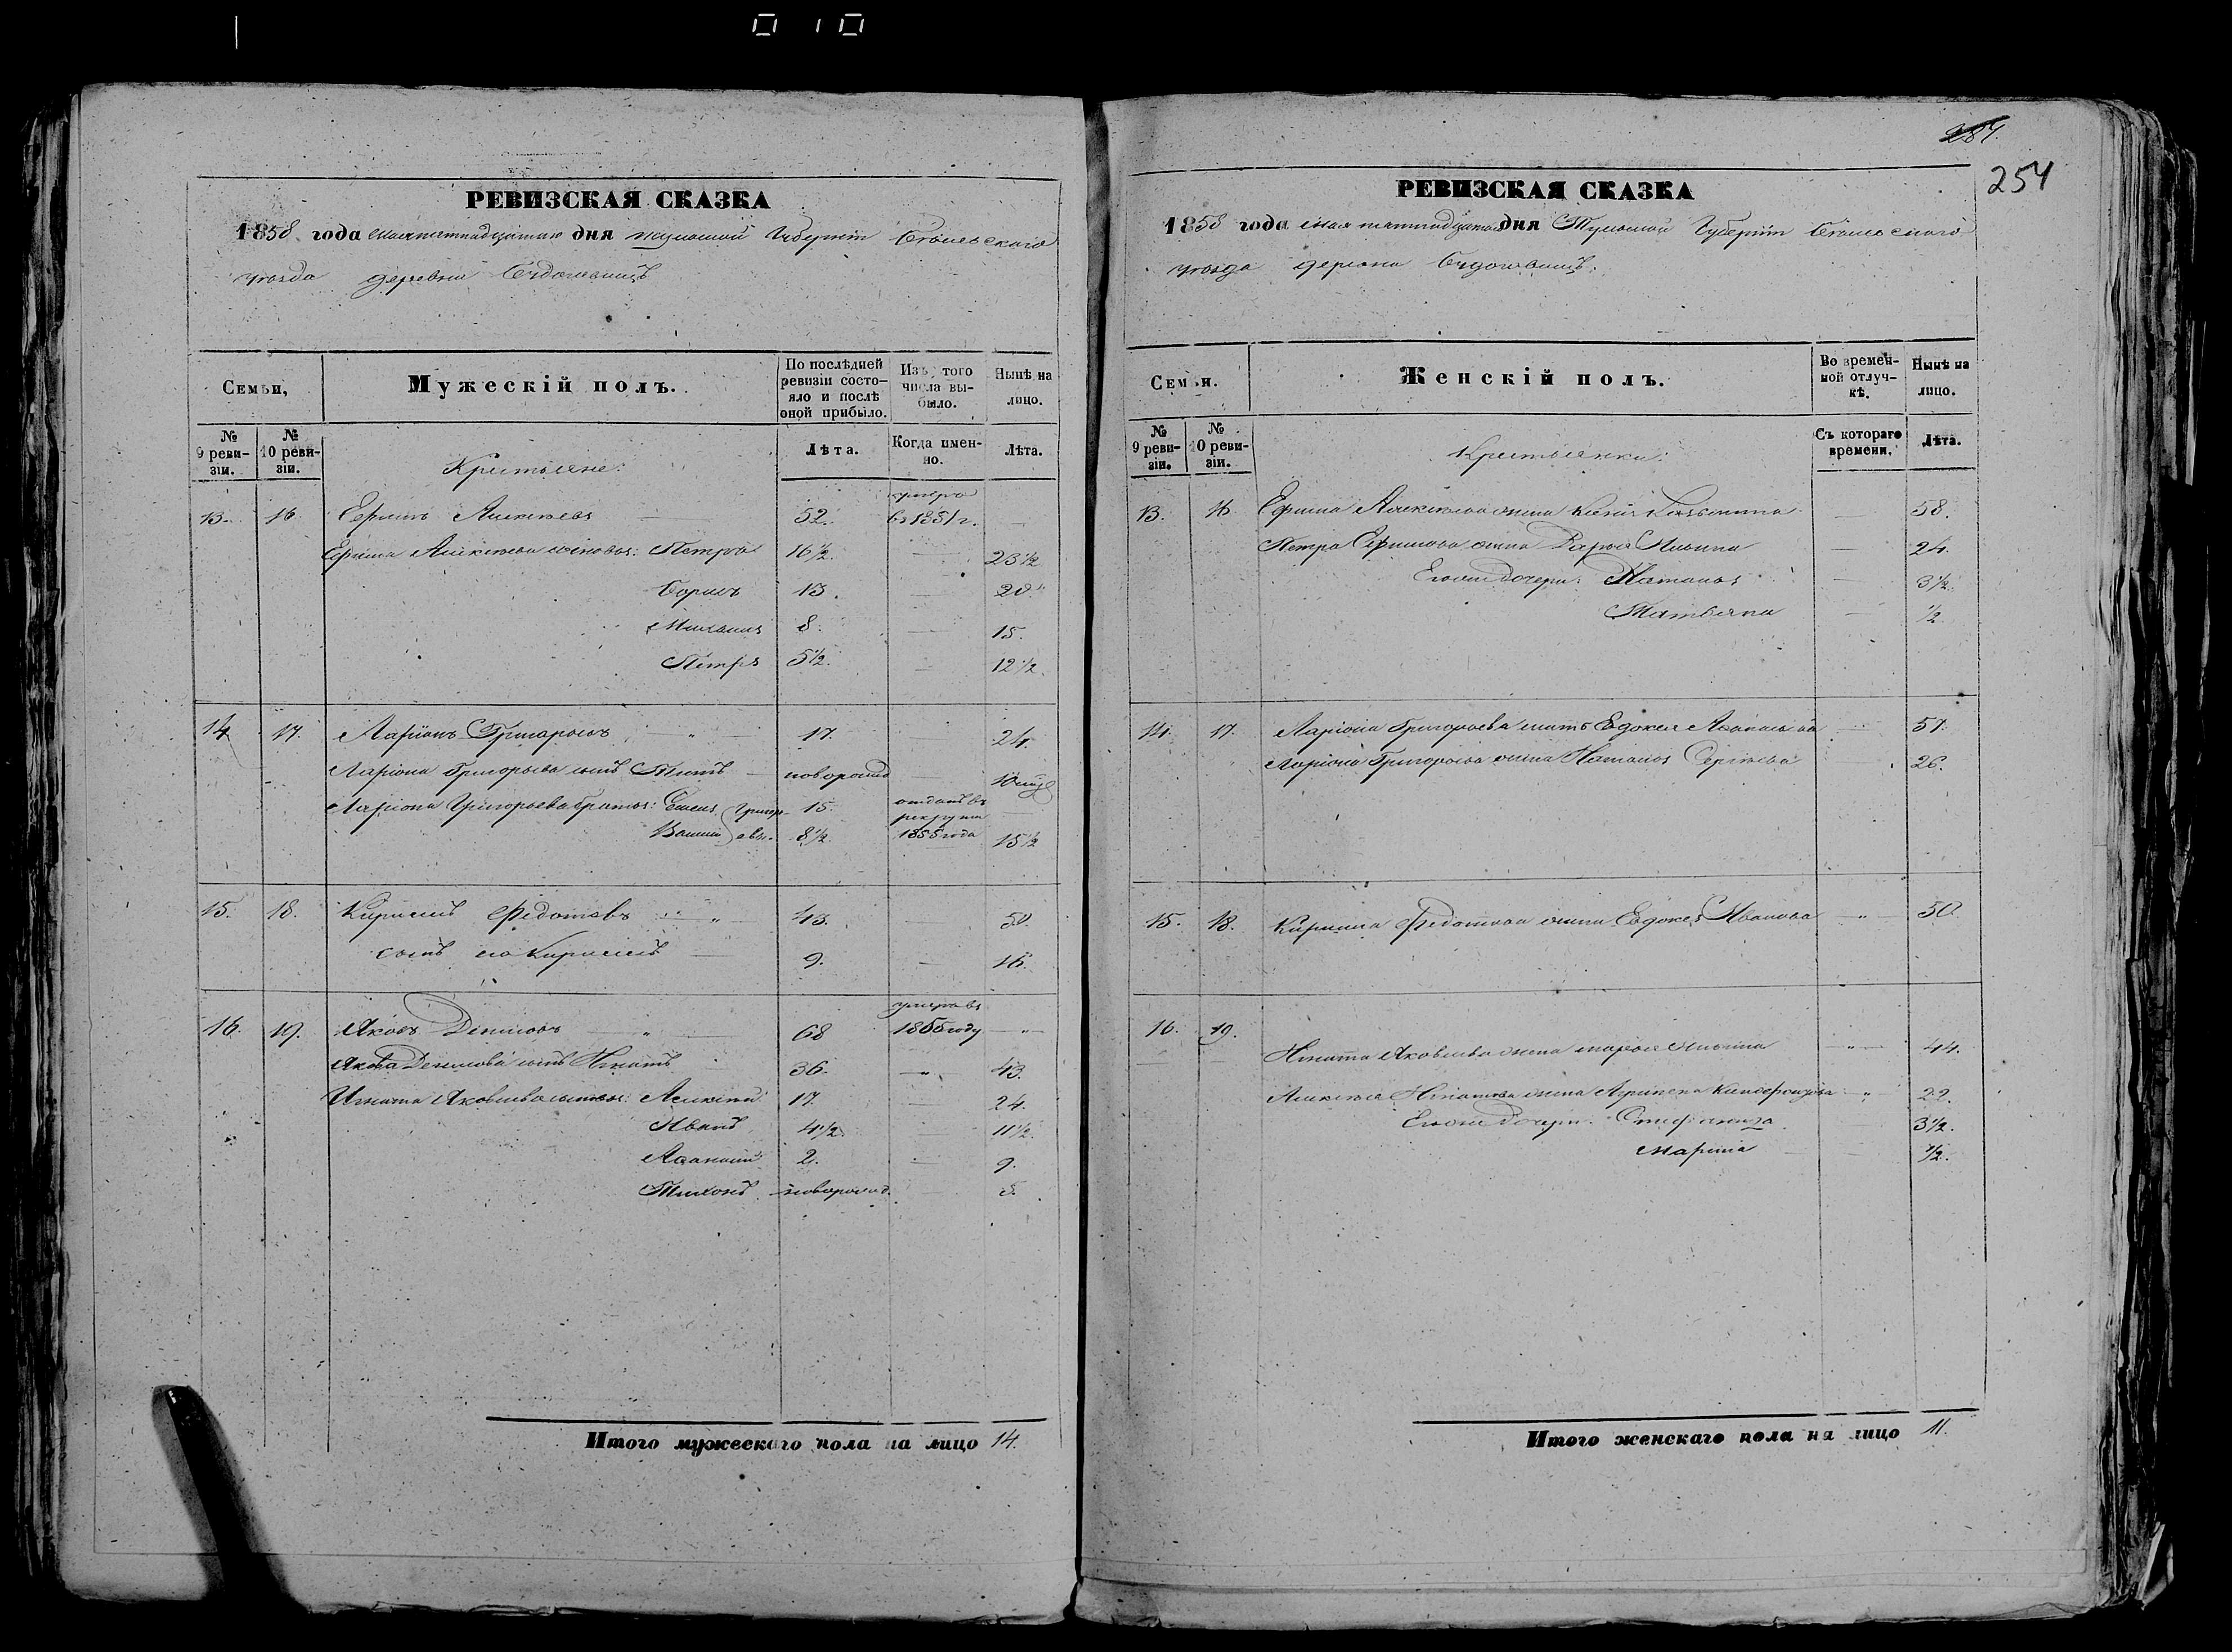 010
РЕВИЗСКАЯ СКАЗКА
1858 года мая пятнадцатаго дня Тульской Губернiи Бѣлевскаго
уѣзда деревни
Семьи,
Мужескій полъ.
По послѣдней ревизіи состояло и послѣ оной прибыло.
Изъ того числа выбыло.
Нынѣ на лицо.
№ 9 ревизіи.
№ 10 ревизіи.
Крестьяне:
Лѣта.
Когда именно.
Лѣта.
13. 16. Ефимъ Алексѣевъ — 52. умеръ въ 1851 г. —
Ефима Алексѣева сыновья: Петръ 16½ — 23½
Борисъ 13. — 20.
Михаилъ 8. — 15.
Петръ 5½. — 12½.
14. 17. Ларіонъ Григорьевъ „ 17. 24.
Ларіона Григорьева сынъ — новорожд — 10 мѣс
Ларіона Григорьева братья: Григорьевы. 15. отданъ въ рекруты 1855 года —
8½ 15½
15. 18. Кирилъ Федотовъ „ 43. 50.
сынъ его Кирилъ — 9. — 16.
16. 19. Яковъ Денисовъ „ 68 умеръ въ 1855 году „
Якова Денисова сынъ Игнатъ 36. „ 43.
Игната Яковлева сыновья: Алексѣй 17. — 24.
Иванъ 4½. — 11½.
Афанасій 2. — 9.
Тихонъ новорожд. — 5.
Итого мужескаго пола на лицо 14.
287.
254
РЕВИЗСКАЯ СКАЗКА
1858 года мая пятнадцатаго дня Тульской Губерніи Бѣлевскаго
уѣзда деревни
Семьи.
Женскій полъ.
Во временной отлучкѣ.
Нынѣ на лицо.
№ 9 ревизіи.
№ 10 ревизіи.
Крестьянки:
Съ котораго времени.
Лѣта.
13. 16. Ефима Алексѣева жена — 58.
Петра Ефимова жена Дарья Ильина — 24.
Его же дочери: Наталья — 3½.
Татьяна — ½
14. 17. Ларіона Григорьева мать Евдокея Афанасьева — 57.
Ларіона Григорьева жена Наталья Сергѣева 26.
15. 18. Кирила Федотова жена Евдокея Иванова „ 50.
16. 19. Игната Яковлева жена Марья Ильина „ 44.
Алексѣя Игнатова жена Агрипена „ 22.
Его же дочери: Стефанида 3½.
Марина — ½.
Итого женскаго пола на лицо 11.